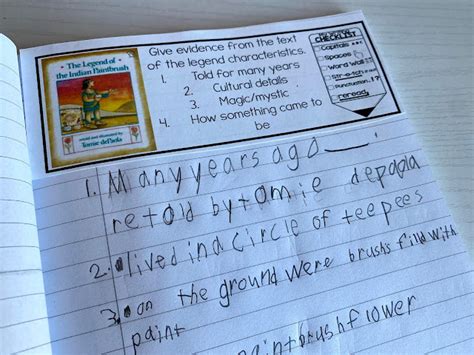 The Legend of
the Indian Paintbrush
retold and illustrated by
Tomie dePaola
Give evidence from the text
of the legend characteristics.
1. Told for many years
2. Cultural details
3. Magic/mystic
4. How something came to
be
CHECKLIST
Capitals
Spaces
Word Wall
Str-e-tch
Punctuation .!?
reread
1. Many years ago
retold by tomie depaola
2. lived in a circle of teepees
3. on the ground were brushs filld with
paint
paintbrush flower